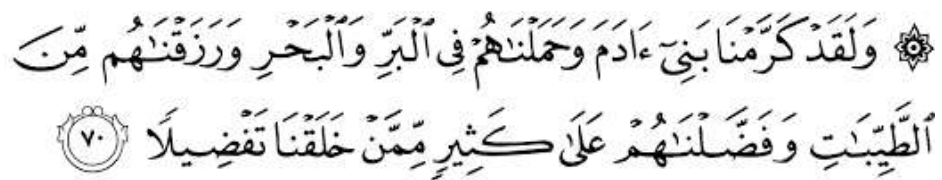 ۞ وَلَقَدۡ كَرَّمۡنَا بَنِيٓ ءَادَمَ وَحَمَلۡنَٰهُمۡ فِي ٱلۡبَرِّ وَٱلۡبَحۡرِ وَرَزَقۡنَٰهُم مِّنَ
ٱلطَّيِّبَٰتِ وَفَضَّلۡنَٰهُمۡ عَلَىٰ كَثِيرٖ مِّمَّنۡ خَلَقۡنَا تَفۡضِيلٗا ٧٠